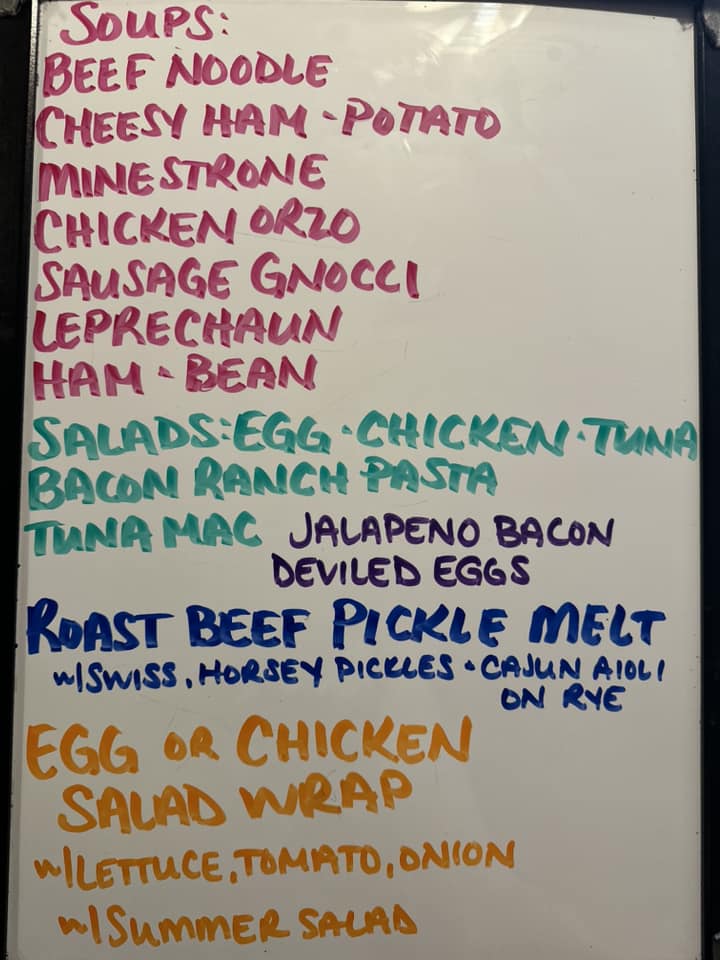 SOUPS:
BEEF NOODLE
CHEESY HAM - POTATO
MINESTRONE
CHICKEN ORZO
SAUSAGE GNOCCI
LEPRECHAUN
HAM - BEAN
SALADS: EGG - CHICKEN - TUNA
BACON RANCH PASTA
TUNA MAC JALAPENO BACON
DEVILED EGGS
ROAST BEEF PICKLE MELT
w/SWISS, HORSEY PICKLES - CAJUN AIOLI
ON RYE
EGG OR CHICKEN
SALAD WRAP
w/LETTUCE, TOMATO, ONION
w/SUMMER SALAD